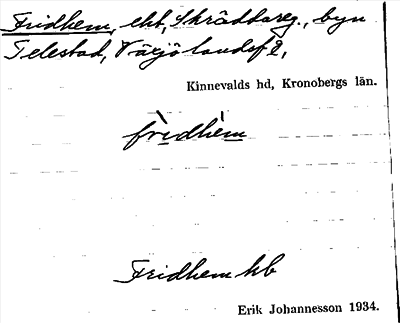 Fridhem, eht, Skräddareg., byn
Telestad, Växjö landsf.,
Kinnevalds hd, Kronobergs län.
frìdhèm
Fridhem hb
Erik Johannesson 1934.